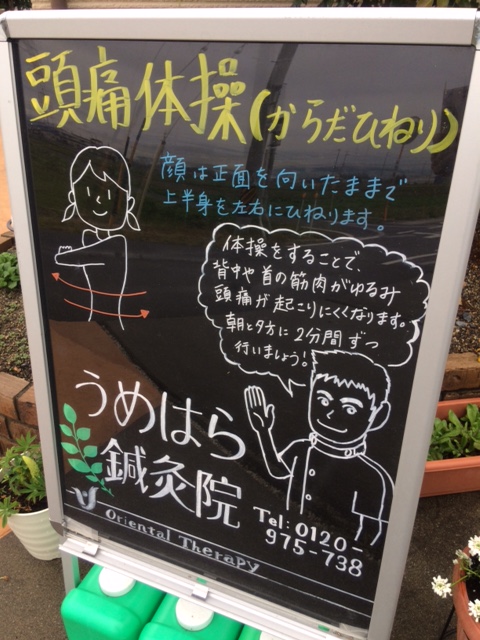 頭痛体操(からだひねり)
顔は正面を向いたままで
上半身を左右にひねります。
体操をすることで、
背中や首の筋肉がゆるみ
頭痛が起こりにくくなります。
朝と夕方に2分間ずつ
行いましょう!
うめはら
鍼灸院
Oriental Therapy
Tel:0120-
975-738